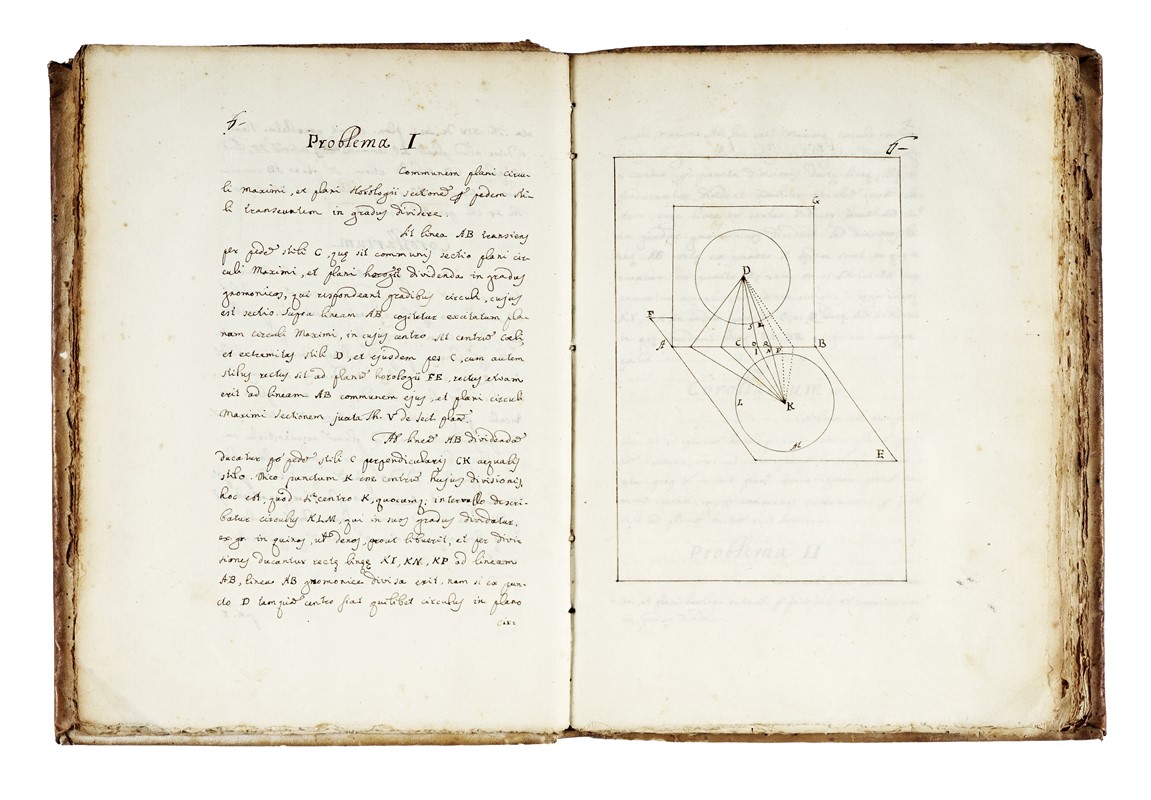 6
Problema I
Communem plani circu-
li Maximi, et plani Horologii sectionẽ ꝑ pedem sti-
li transeuntem in gradus dividere.
Sit linea AB transiens
per pedẽ stili C, quę sit communis sectio plani cir-
culi Maximi, et plani horologii dividenda in gradus
gnomonicos, qui respondeant gradibus circuli, cujus
est sectio. Supra lineam AB cogitetur excitatum pla-
num circuli Maximi, in cujus centro sit centrũ Cœli,
et extremitas stili D, et ejusdem pes C, cum autem
stilus rectus sit ad planũ horologii FE, rectus etiam
erit ad lineam AB communem ejus, et plani circuli
Maximi sectionem juxta Th. V de sect. plan.
Ad lineã AB dividendã
ducatur ꝑ pedẽ stili C perpendicularis CK aequalis
stilo. Dico punctum K esse centrũ hujus divisionis,
hoc est, quod si centro K, quocumq; intervallo descri-
batur circulus KLM, qui in suos gradus dividatur,
ex gr. in quinos, vel denos, prout libuerit, et per divi-
siones ducantur rectę linęę KI, KN, KP ad lineam
AB, linea AB gnomonice divisa erit. nam si ex pun-
cto D tamquã centro fiat quilibet circulus in plano
6
G
D
F
S
A
C
O
Q
B
I
N
P
L
K
M
E